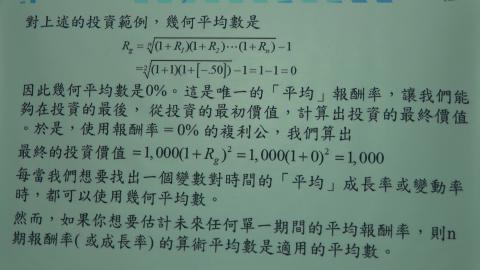 對上述的投資範例，幾何平均數是
R_g = ⁿ√(1+R₁)(1+R₂)⋯(1+Rₙ) −1
=²√(1+1)(1+[−.50]) −1=1−1=0
因此幾何平均數是0%。這是唯一的「平均」報酬率，讓我們能
夠在投資的最後，從投資的最初價值，計算出投資的最終價值
。於是，使用報酬率 = 0% 的複利公，我們算出
最終的投資價值 =1,000(1+R_g)² =1,000(1+0)² =1,000
每當我們想要找出一個變數對時間的「平均」成長率或變動率
時，都可以使用幾何平均數。
然而，如果你想要估計未來任何單一期間的平均報酬率，則n
期報酬率(或成長率)的算術平均數是適用的平均數。